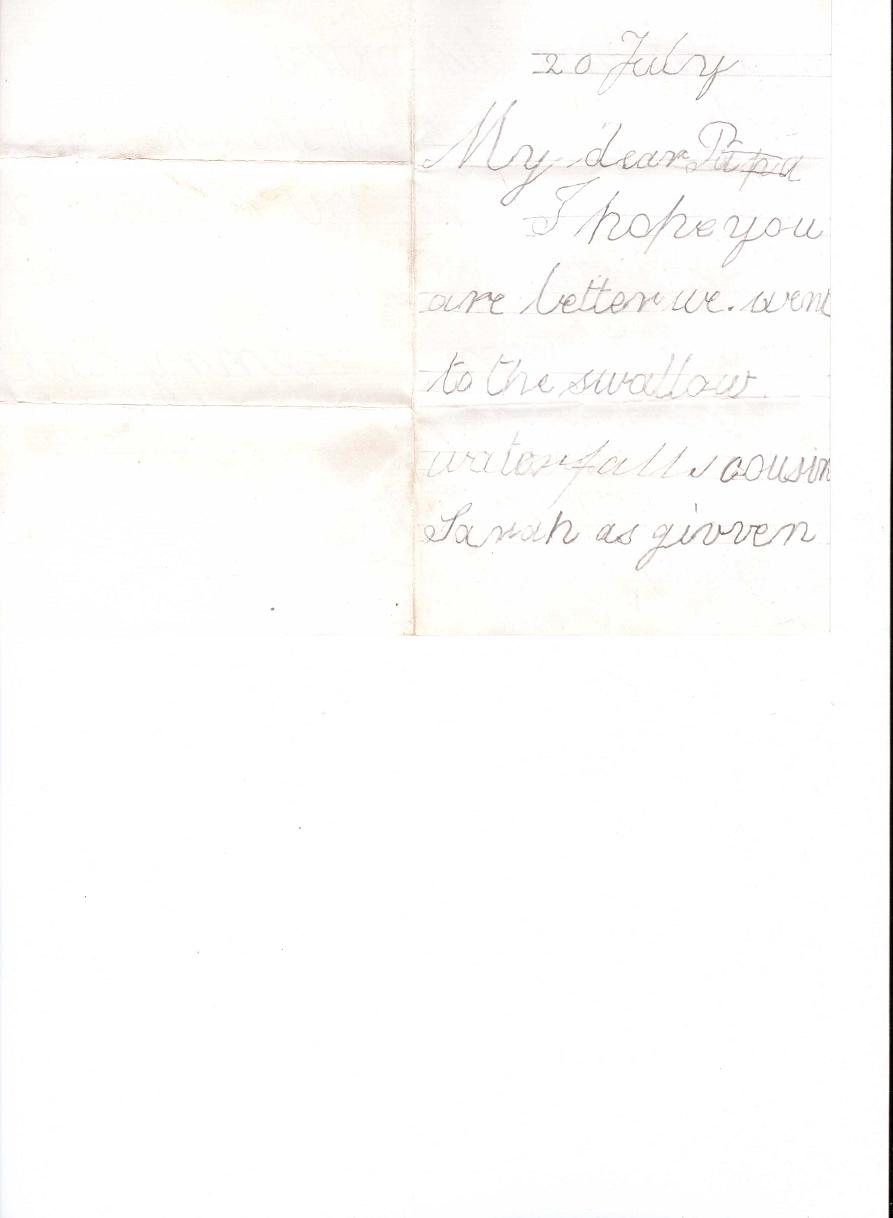 20 July
My dear Papa
I hope you
are better we. went
to the swallow
waterfalls cousin
Sarah as givven